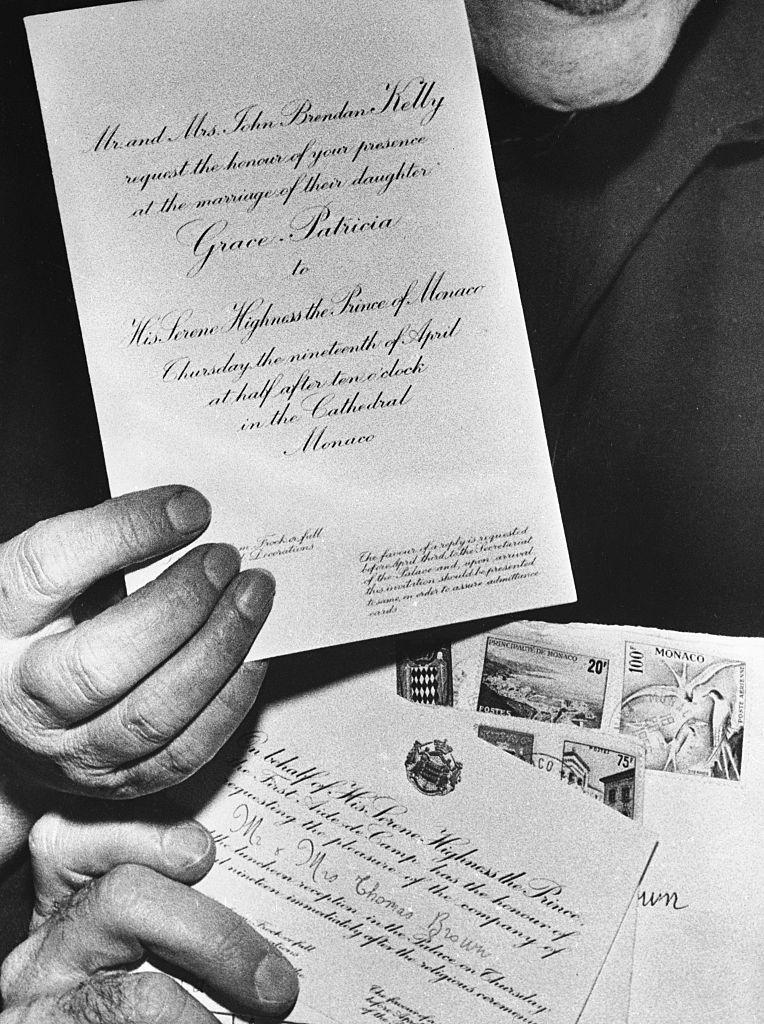 Mr. and Mrs. John Brendan Kelly
request the honour of your presence
at the marriage of their daughter
Grace Patricia
to
His Serene Highness the Prince of Monaco
Thursday, the nineteenth of April
at half after ten o'clock
in the Cathedral
Monaco
Frock or full
Decorations
The favour of a reply is requested
before April third, to the Secretariat
of the Palace and, upon arrival
this invitation should be presented
to same, in order to assure admittance
cards
PRINCIPAUTÉ DE MONACO
20F
POSTES
100F
MONACO
POSTE AÉRIENNE
POSTES
75F
behalf of His Serene Highness the Prince,
the First Aide de Camp has the honour of
requesting the pleasure of the company of
Mr & Mrs Thomas Brown
luncheon reception in the Palace on Thursday
nineteen immediately after the religious ceremony
Frock or full
The favour of
before April
of the